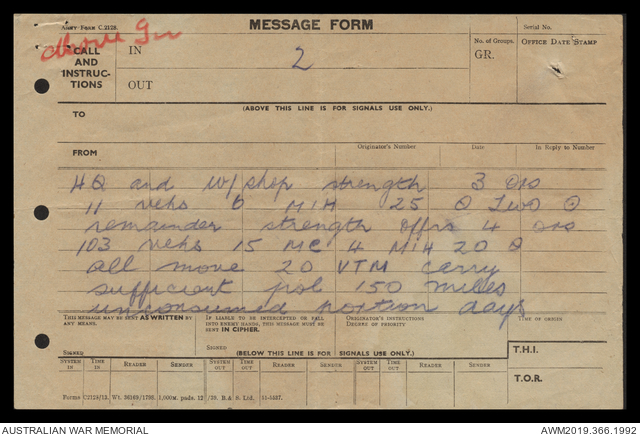 Army Form C.2128.
MESSAGE FORM
Serial No.
above Gr
CALL AND INSTRUC-TIONS
IN
2
No. of Groups.
GR.
OFFICE DATE STAMP
OUT
(ABOVE THIS LINE IS FOR SIGNALS USE ONLY.)
TO
FROM
Originator's Number
Date
In Reply to Number
HQ and w/shop strength 3 ors
11 vehs 6 MIH 25 ⊙ Two ⊙
remainder strength offrs 4 ors
103 vehs 15 MC 4 MIH 20 ⊙
all move 20 VTM carry
sufficient pol 150 miles
unconsumed portion days
THIS MESSAGE MAY BE SENT AS WRITTEN BY ANY MEANS.
IF LIABLE TO BE INTERCEPTED OR FALL INTO ENEMY HANDS, THIS MESSAGE MUST BE SENT IN CIPHER.
ORIGINATOR'S INSTRUCTIONS DEGREE OF PRIORITY
TIME OF ORIGIN
SIGNED
SIGNED
(BELOW THIS LINE IS FOR SIGNALS USE ONLY.)
T.H.I.
SYSTEM IN
TIME IN
READER
SENDER
SYSTEM OUT
TIME OUT
READER
SENDER
SYSTEM OUT
TIME OUT
READER
SENDER
T.O.R.
Forms C2128/13. Wt. 36169/1788. 1,000M. pads. 12/39. B.A.S. Ltd. 51-5487.
AUSTRALIAN WAR MEMORIAL
AWM2019.366.1992